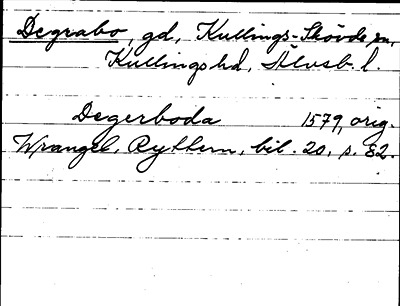 Degrabo, gd, Kullings-Skövde sn,
Kullings hd, Älvsb. l.
Degerboda 1579, orig.
Wrangel, Rythern, bil. 20, s. 82.